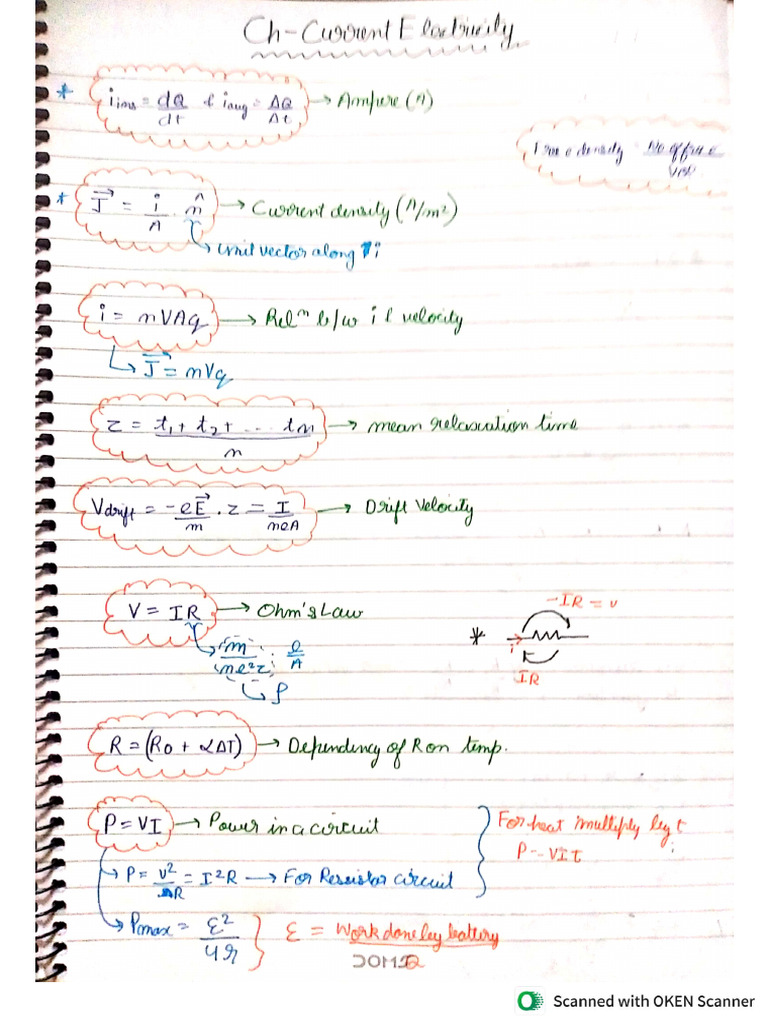 Ch-Current Electricity
* i_ins = dQ/dt & i_avg = ΔQ/Δt → Ampere (A)
e density = No of free e / Vol
* J⃗ = i/A . n̂ → Current density (A/m²)
↳ Unit vector along i
i = nVAq → Relⁿ b/w i & velocity
↳ J⃗ = nVq
z = t₁ + t₂ + ... tn / n → mean relaxation time
Vdrift = -eE⃗/m . z = I/neA → Drift Velocity
V = IR → Ohm's Law
-IR = v
↳ m/ne²z . l/A
* i
IR
↳ ρ
R = (R₀ + αΔT) → Dependency of R on temp.
P = VI → Power in a circuit
For heat multiply by t
P = VIt
↳ P = V²/R = I²R → For Resistor circuit
↳ Pmax = ε²/4r } ε = Work done by battery
DOMS
Scanned with OKEN Scanner